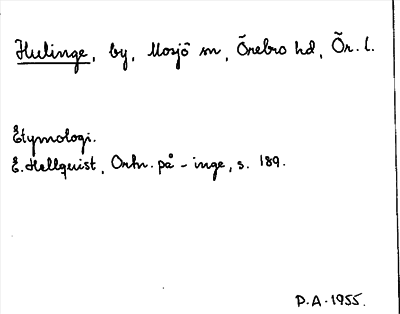 Hulinge, by, Mosjö sn, Örebro hd, Ör. l.
Etymologi.
E. Hellquist, Ortn. på -inge, s. 189.
P.A. 1955.